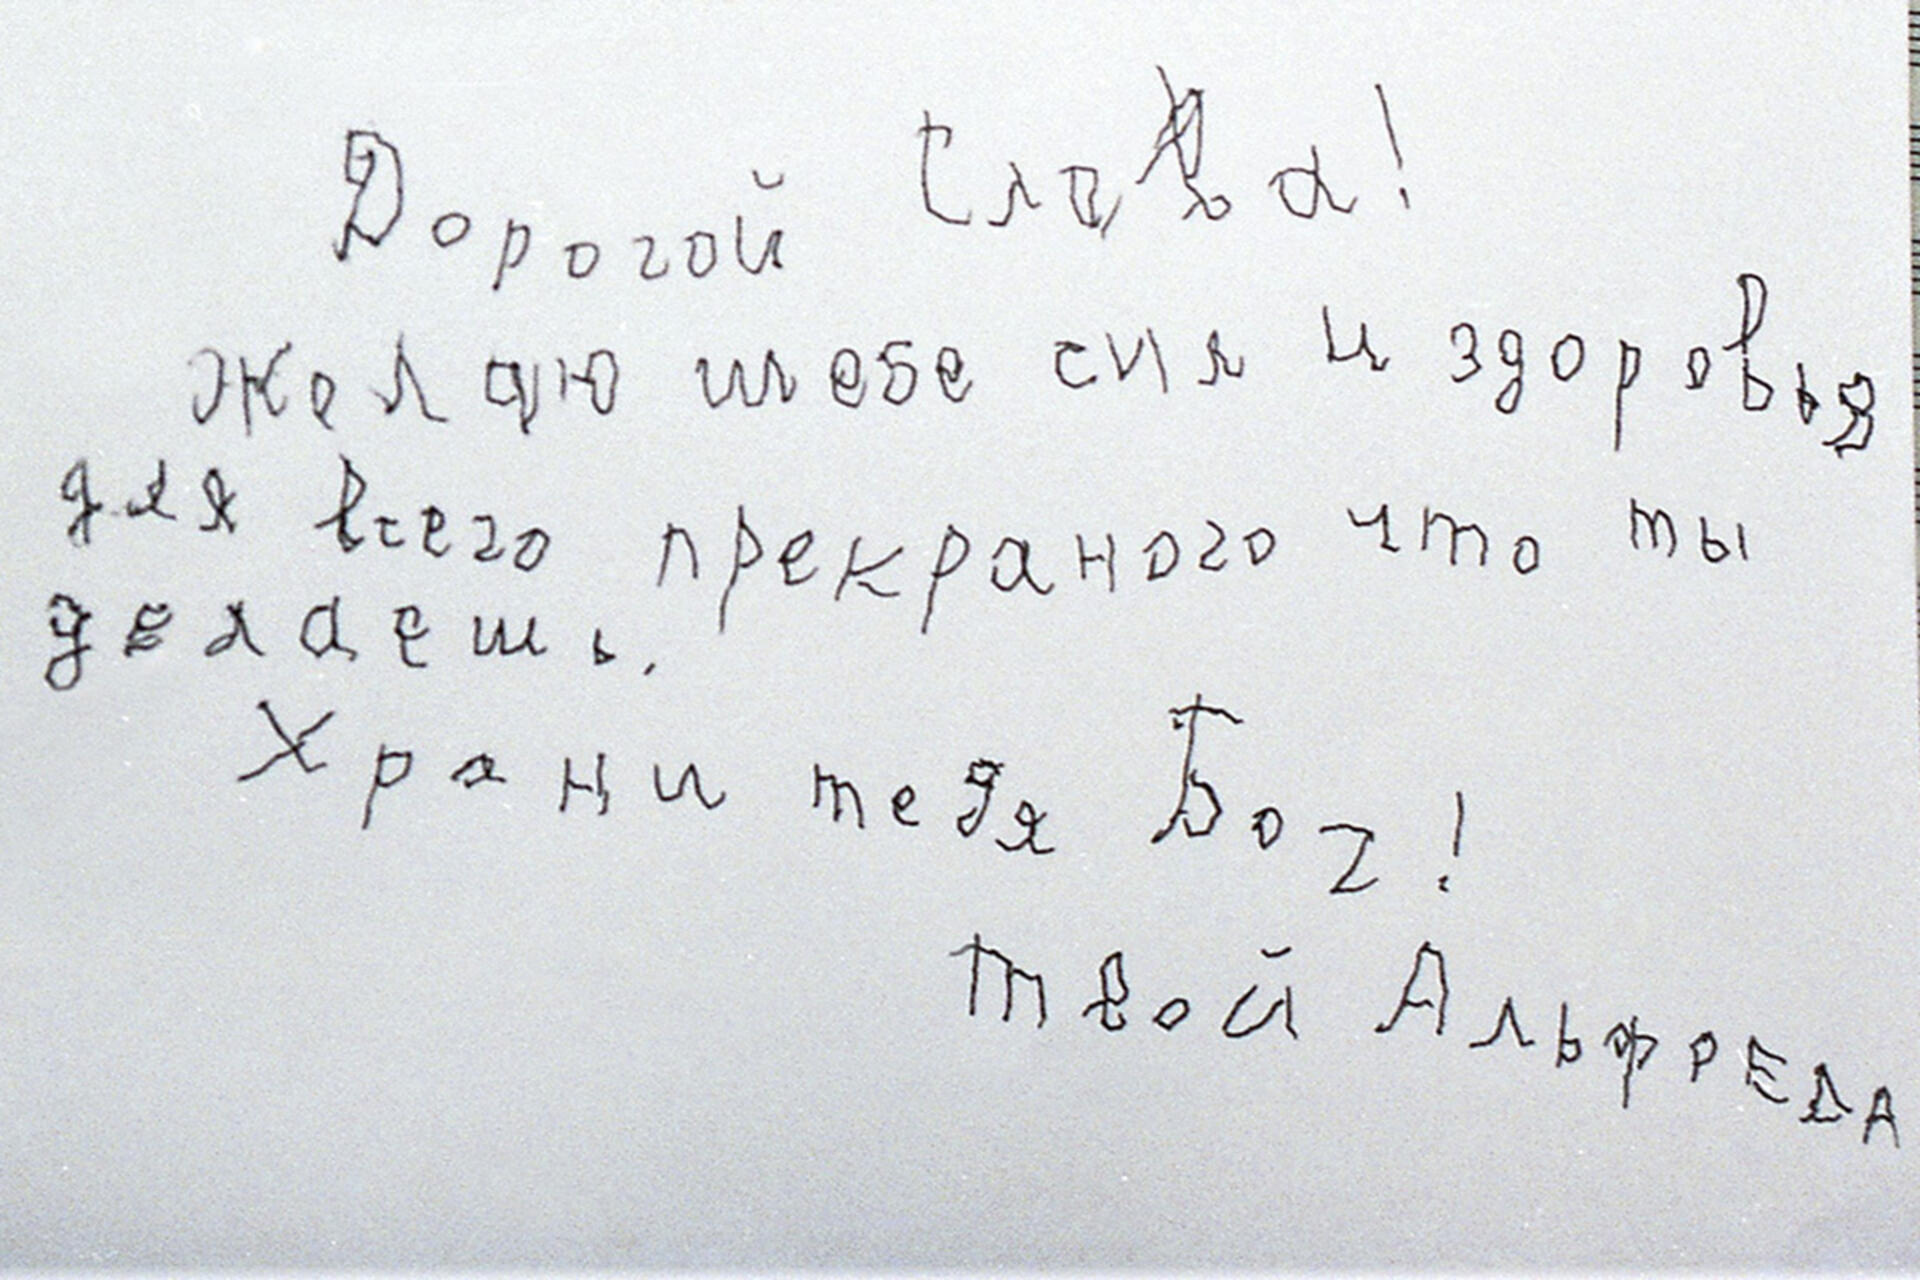 Дорогой Слава!
Желаю тебе сил и здоровья
для всего прекраного что ты
делаешь.
Храни тедя Бог!
Твой АльфрЕДА